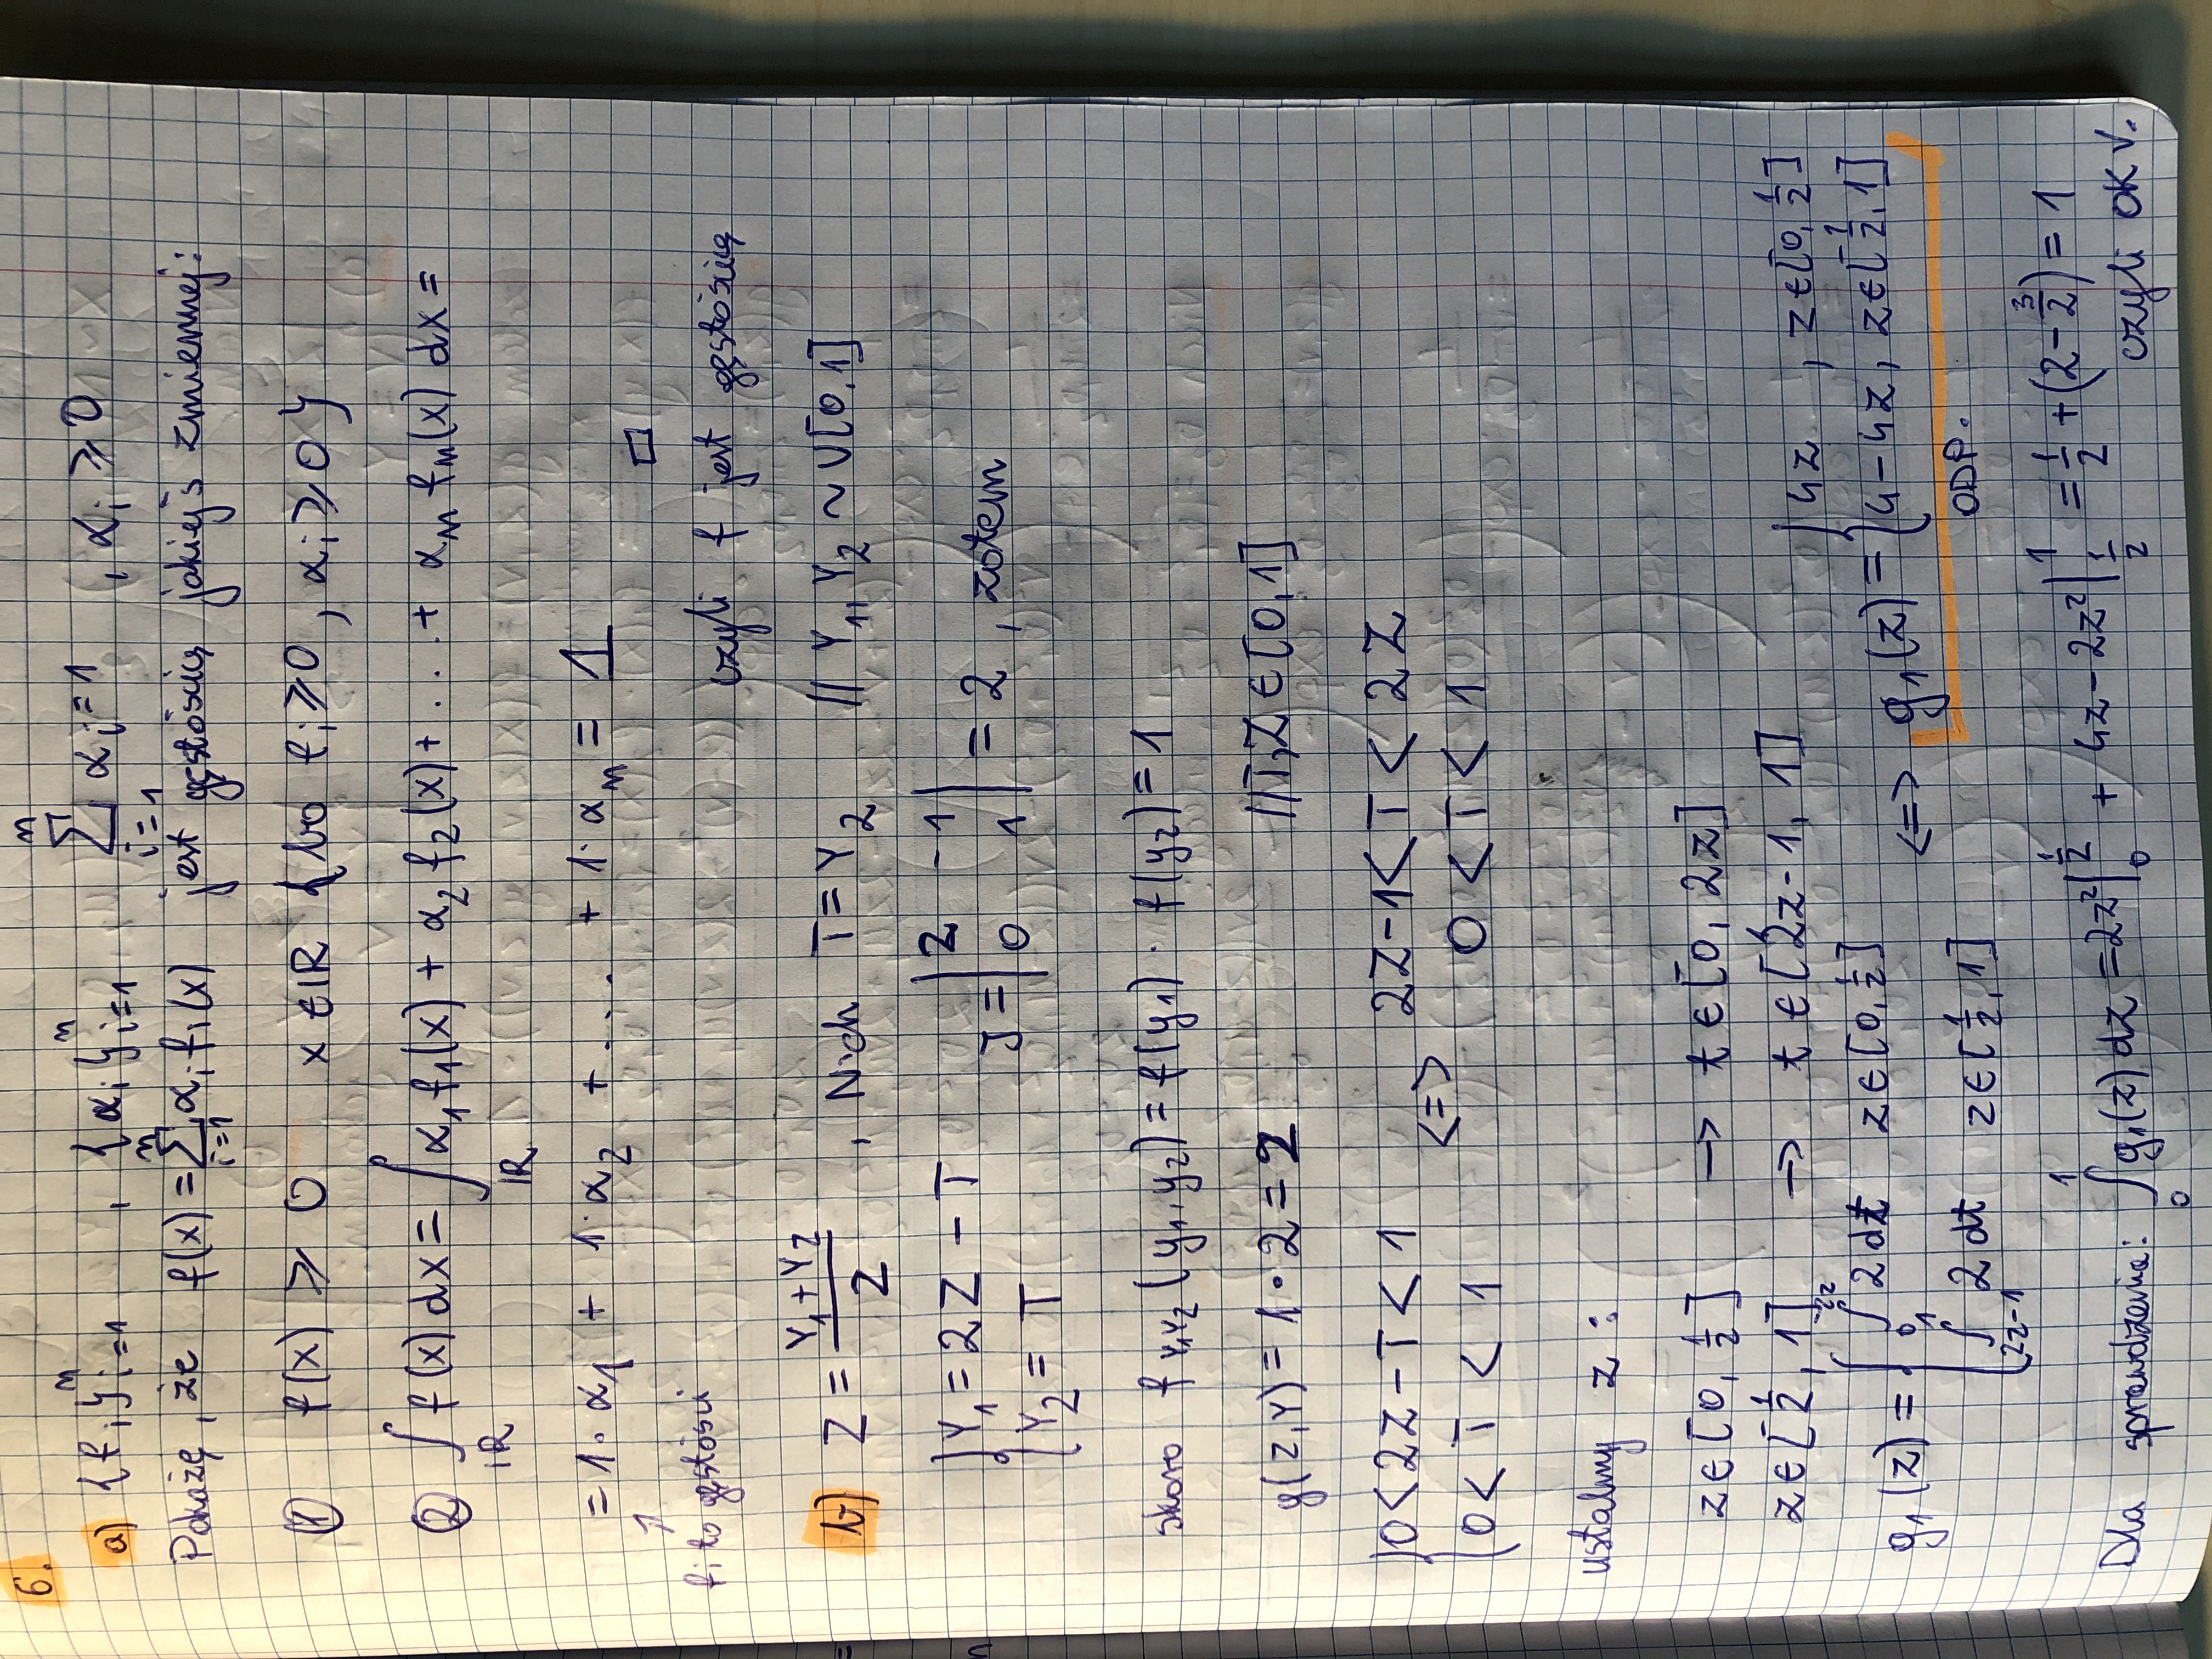 6.
a) {f_i}_{i=1}^n , {α_i}_{i=1}^n   \sum_{i=1}^n α_i = 1 , α_i ⩾ 0
Pokażę, że f(x) = \sum_{i=1}^n α_i f_i(x) jest gęstością jakiejś zmiennej:
① f(x) ⩾ 0   x ∈ ℝ {bo f_i ⩾ 0, α_i ⩾ 0}
② ∫_ℝ f(x) dx = ∫_ℝ α_1 f_1(x) + α_2 f_2(x) + . . . + α_n f_n(x) dx =
= 1·α_1 + 1·α_2 + . . . . + 1·α_n = 1
↑ □
f_i to gęstości
czyli f jest gęstością
b) Z = \frac{Y_1+Y_2}{2} , Niech T = Y_2   // Y_1, Y_2 ~ U[0,1]
{ Y_1 = 2Z - T   J = | 2 -1 ; 0 1 | = 2 , zatem
{ Y_2 = T
skoro f_{Y_1Y_2}(y_1, y_2) = f(y_1) · f(y_2) = 1
g(z, Y) = 1 • 2 = 2   // T, Z ∈ [0,1]
{ 0 < 2Z - T < 1 <=> 2Z-1 < T < 2Z
{ 0 < T < 1   0 < T < 1
ustalmy z :
z ∈ [0, \frac{1}{2}] → t ∈ [0, 2z]
z ∈ [\frac{1}{2}, 1] → t ∈ [2z-1, 1]
g_1(z) = { ∫_0^{2z} 2 dt   z ∈ [0, \frac{1}{2}]
{ ∫_{2z-1}^1 2 dt   z ∈ [\frac{1}{2}, 1]
<=> g_1(z) = { 4z , z ∈ [0, \frac{1}{2}]
{ 4-4z , z ∈ [\frac{1}{2}, 1]
ODP.
Dla sprawdzenia: ∫_0^1 g_1(z) dz = 2z^2 |_0^{\frac{1}{2}} + 4z - 2z^2 |_{\frac{1}{2}}^1 = \frac{1}{2} + (2 - \frac{3}{2}) = 1
czyli OK V.